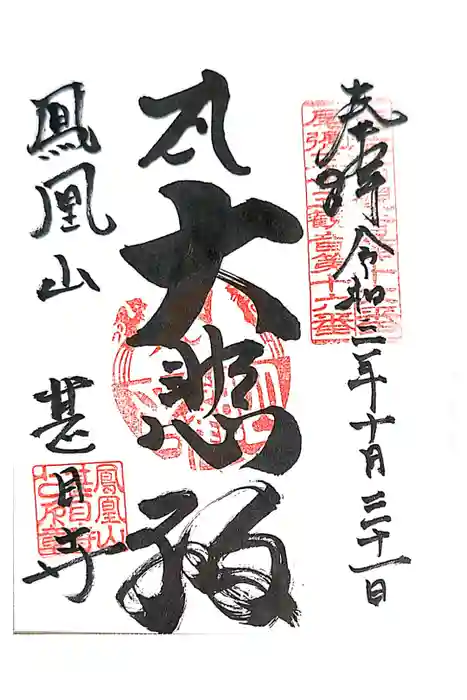 奉拝 令和三年十月三十一日
尾張三十三観音第十六番
大悲殿
鳳凰山 甚目寺
鳳凰山
甚目寺